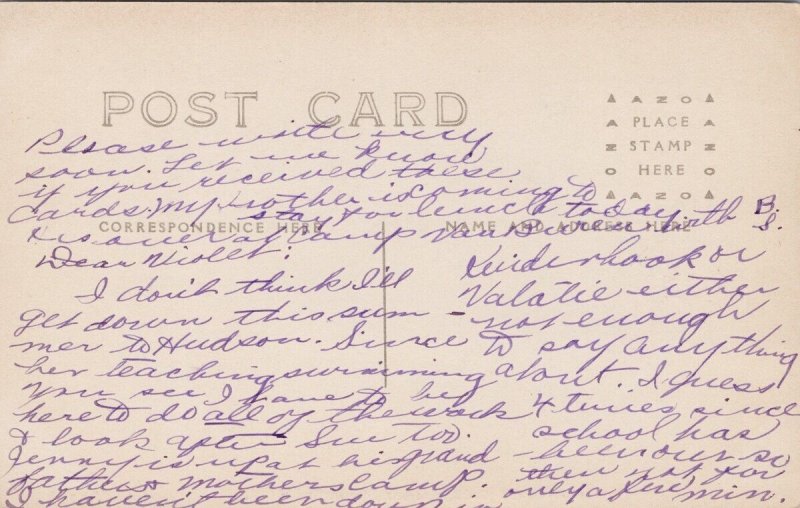 POST CARD
AZO
PLACE
STAMP
HERE
CORRESPONDENCE HERE
NAME AND ADDRESS HERE
Please write very
soon. Let me know
if you received these
cards. My brother is coming to
stay for lunch today
& is over at Camp Van with B.S.
Dear Violet:
I don't think I'll
get down this sum-
mer to Hudson. Since
her teaching swimming
you see I have to be
here to do all of the work
& look after Sue too.
Jenny is up at her grand
father & mothers camp.
I haven't been down in
Kinderhook or
Valatie either
- not enough
to say anything
about. I guess
4 times since
school has
been our so
then not for
only a few min.